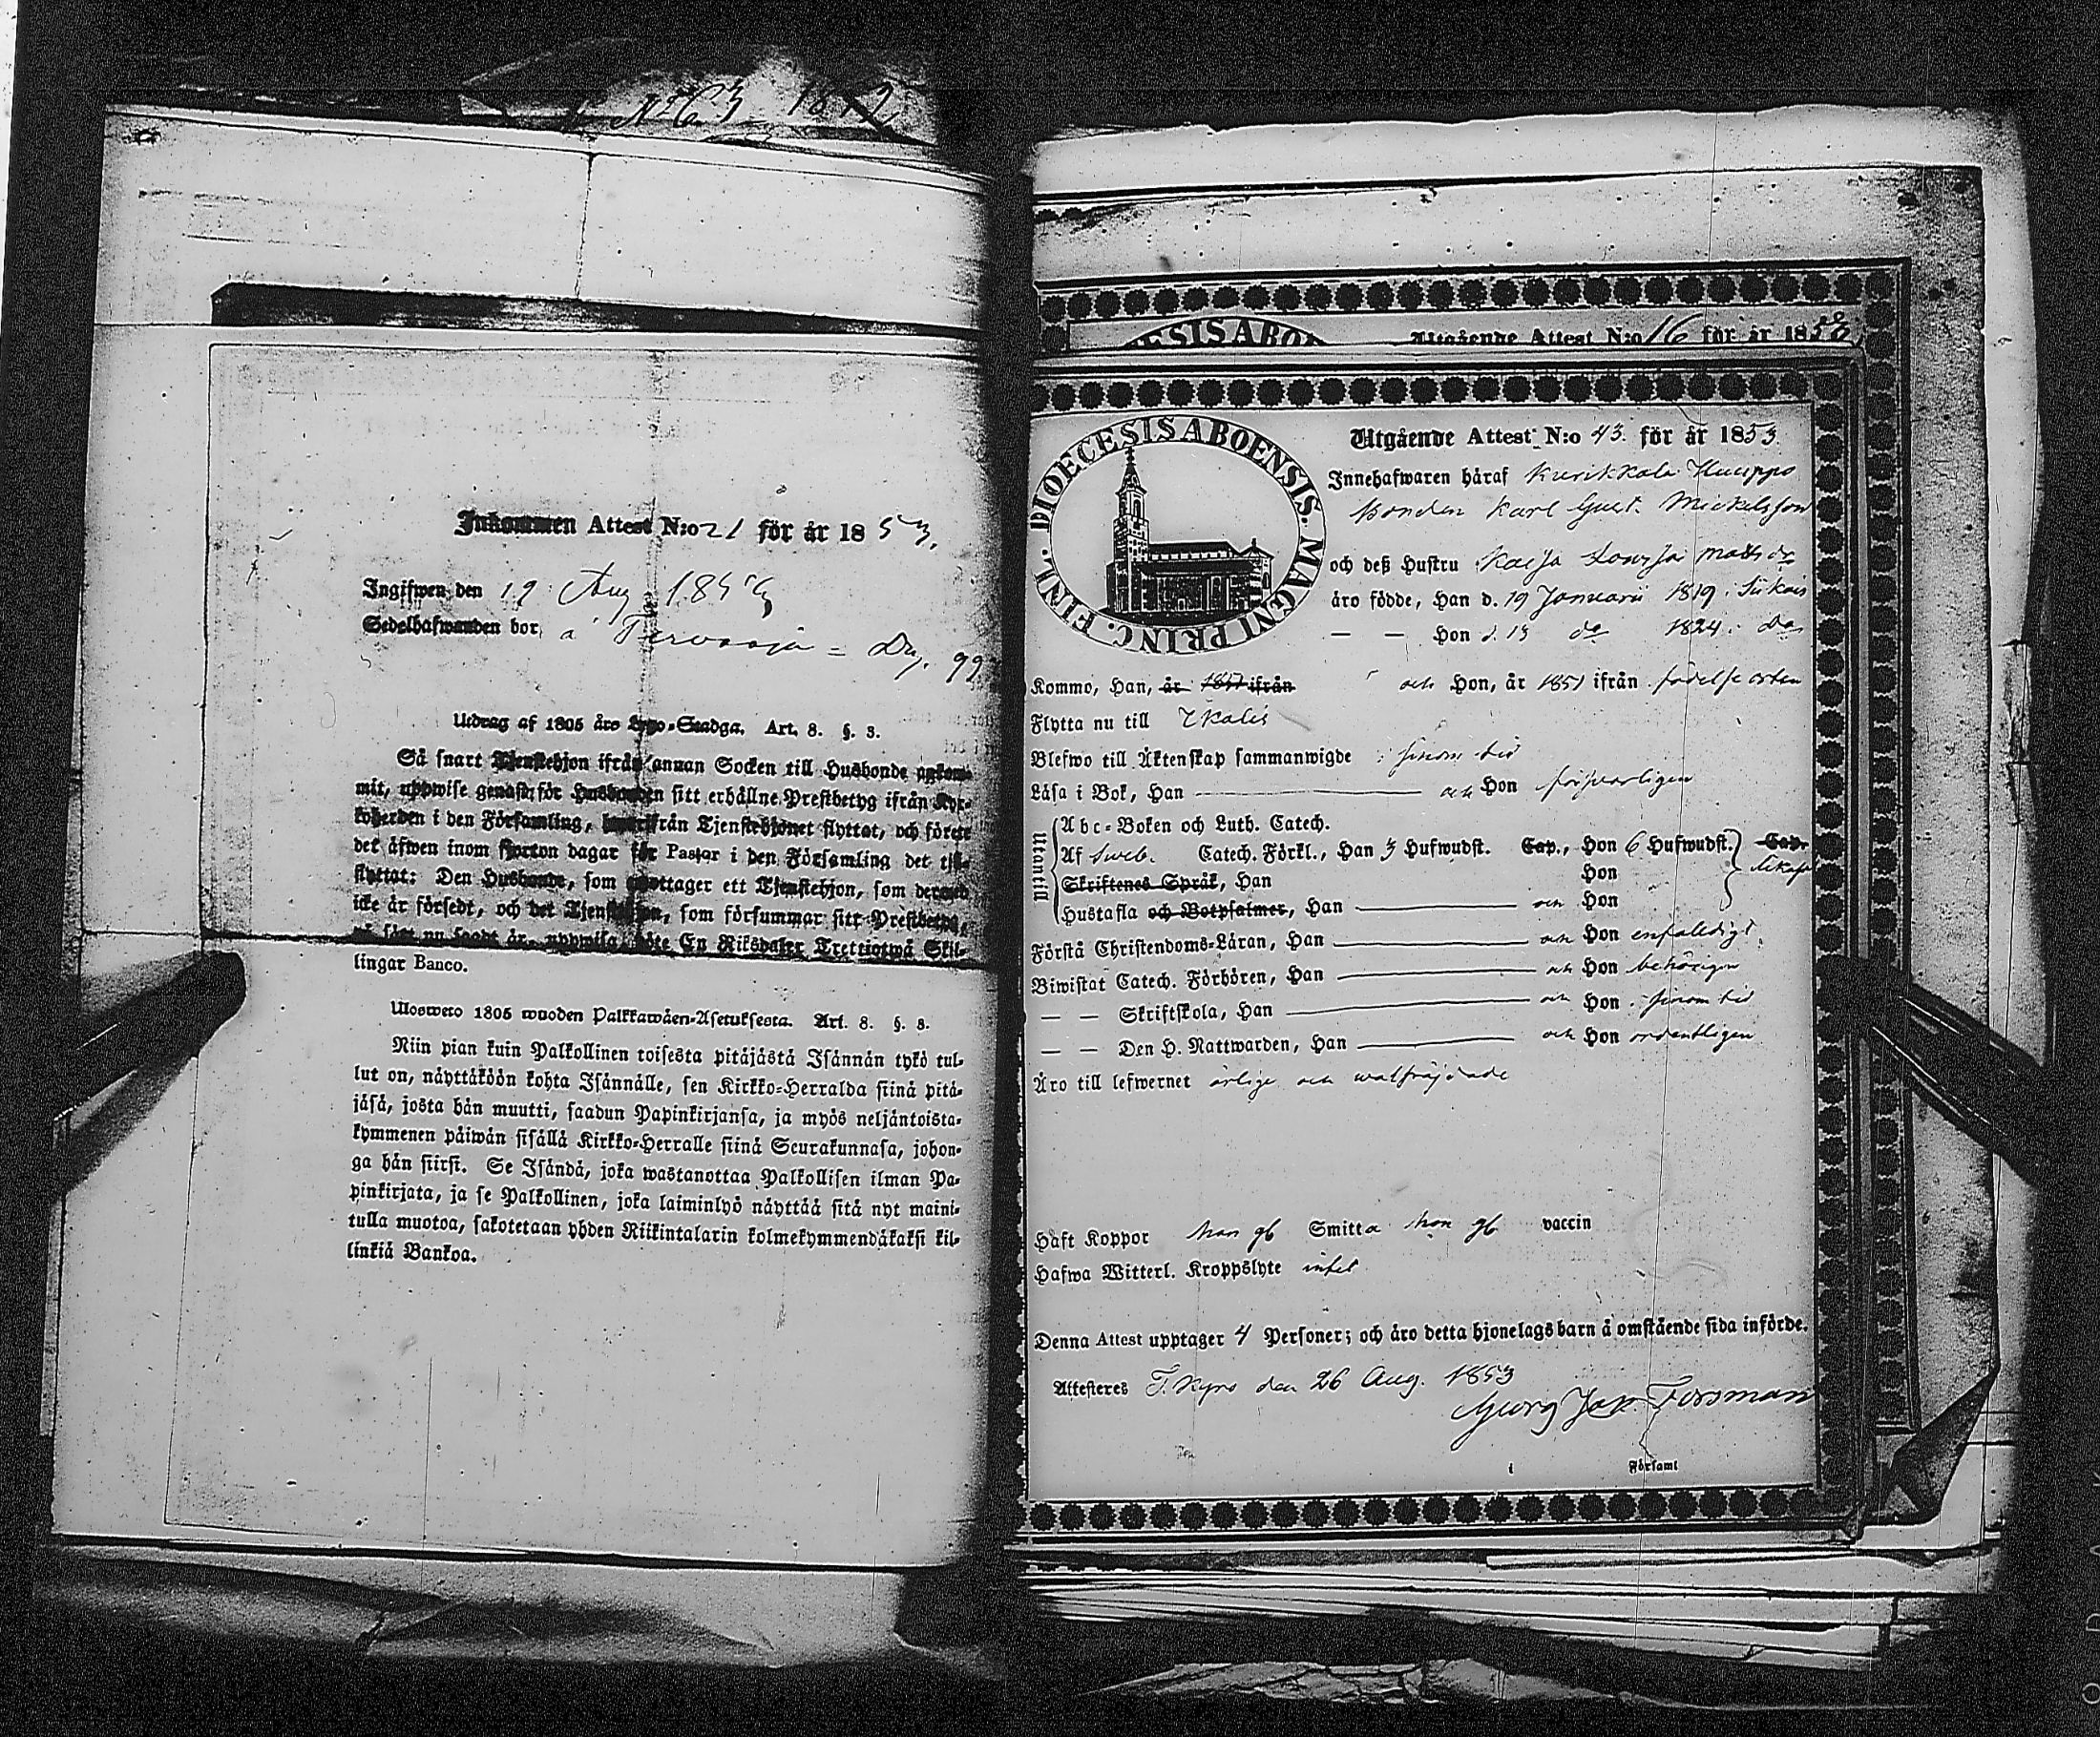 N:o 63 1812
Inkommen Attest N:o 21 för år 1853.
Ingifwen den 19 Aug 1853
Sedelhafwanden bor, å
Utdrag af 1805 års Lego-Stadga. Art. 8. §. 3.
Så snart Tjenstehjon ifrån annan Socken till Husbonde ankom-
mit, uppwise genast för Husbonden sitt erhållne Prestbetyg ifrån Kyr-
koherden i den Församling, hwarifrån Tjenstehjonet flyttat, och förete
det äfwen inom fjorton dagar för Pastor i den Församling det till-
flyttat: Den Husbonde, som emottager ett Tjenstehjon, som dermed
icke är försedt, och det Tjenstehjon, som försummar sitt Prestbetyg,
på sätt nu sagdt är, uppwisa, böte En Riksdaler Trettiotwå Skil-
lingar Banco.
Ulosweto 1805 wuoden Palkkawäen-Asetuksesta. Art. 8. §. 3.
Niin pian kuin Palkollinen toisesta pitäjästä Isännän tykö tul-
lut on, näyttäköön kohta Isännälle, sen Kirkko-Herralda siinä pitä-
jäsä, josta hän muutti, saadun Papinkirjansa, ja myös neljäntoista-
kymmenen päiwän sisällä Kirkko-Herralle siinä Seurakunnasa, johon-
ga hän siirsi. Se Isändä, joka wastanottaa Palkollisen ilman Pa-
pinkirjata, ja se Palkollinen, joka laiminlyö näyttää sitä nyt maini-
tulla muotoa, sakotetaan yhden Riikintalarin kolmekymmendäkaksi kil-
linkiä Bankoa.
ESIS ABO
Utgående Attest N:o 16 för år 1853
DIOECESIS ABOENSIS. MAGNI PRINC. FINL.
Utgående Attest N:o 43. för år 1853.
Innehafwaren häraf Kurikkala
Bonden Karl Gust. Mickelsson
och deß Hustru Kaisa Lovisa Matts dr
äro födde, Han d. 19 Januarii 1819 i
— — Hon d. 15 do 1824. i do
Kommo, Han, år 1851 ifrån och Hon, år 1851 ifrån födelse orten
Flytta nu till Ikalis
Blefwo till Äktenskap sammanwigde i sinom tid
Läsa i Bok, Han — och Hon försvarligen
Utantill
Abc-Boken och Luth. Catech.
Af Sweb. Catech. Förkl., Han 3 Hufwudst. Cap., Hon 6 Hufwudst. Cap.
Skriftenes Språk, Han Hon
Hustafla och Botpsalmer, Han — och Hon
Förstå Christendoms-Läran, Han — och Hon enfaldigt.
Biwistat Catech. Förhören, Han — och Hon behörigen
— — Skriftskola, Han — och Hon i sinom tid
— — Den H. Nattwarden, Han — och Hon ordentligen
Äro till lefwernet ärlige och wälfräjdade
Haft Koppor Smitta vaccin
Hafwa Witterl. Kroppslyte intet
Denna Attest upptager 4 Personer; och äro detta hjonelags barn å omstående sida införde.
Attesteres T. Kyro den 26 Aug. 1853
Georg Jak. Forsman
i Församl